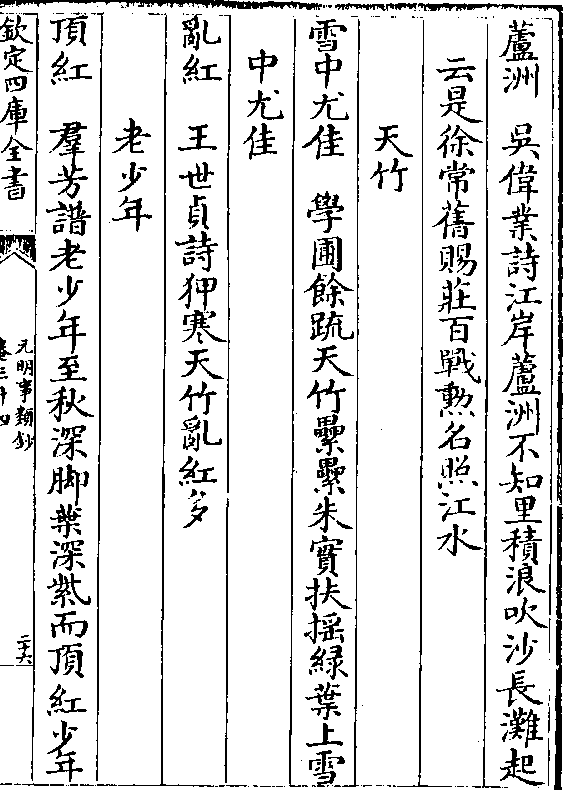 蘆洲　吳偉業詩江岸蘆洲不知里積浪吹沙長灘起
云是徐常舊賜莊百戰勲名照江水
天竹
雪中尤佳　學圃餘疏天竹纍纍朱實扶揺緑葉上雪
中尤佳
亂紅　王世貞詩狎寒天竹亂紅多
老少年
頂紅　羣芳譜老少年至秋深脚葉深紫而頂紅少年
欽定四庫全書
元明事類鈔
卷三十四
二十六